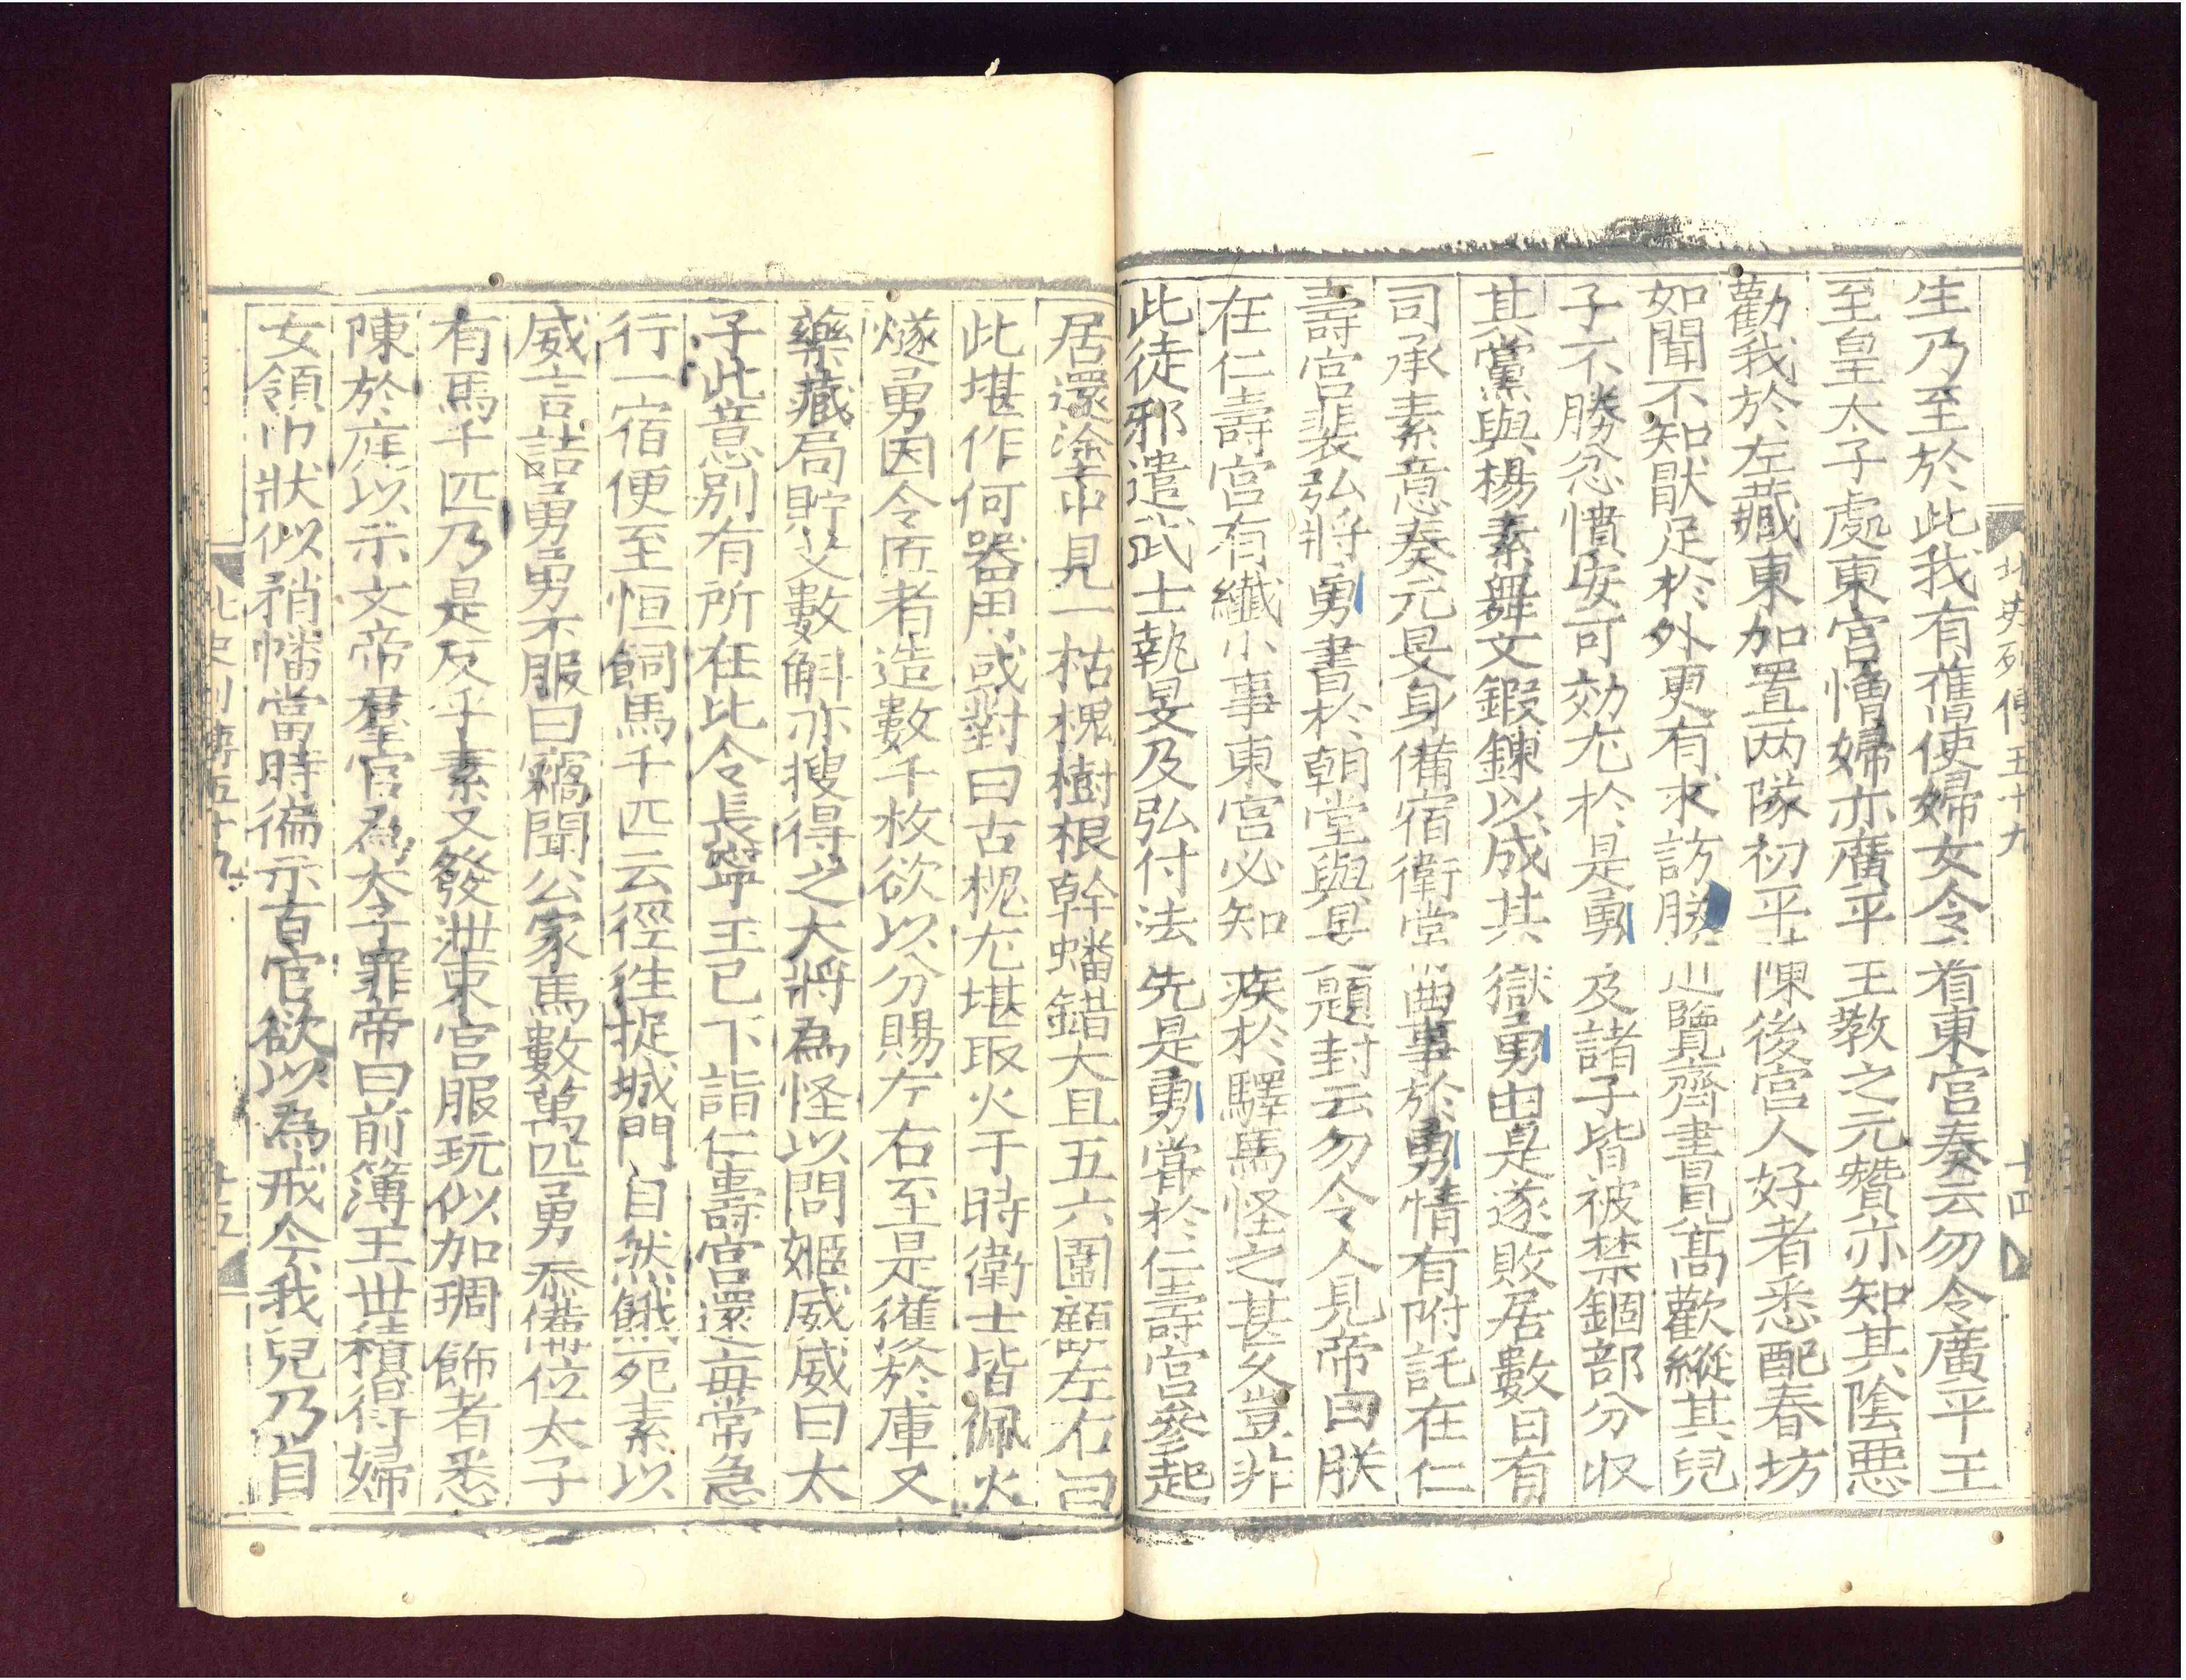 生乃至於此我有舊使婦女令看東宮奏云勿令廣平王
至皇太子處東宮憎婦亦廣平王教之元贊亦知其陰惡
勸我於左藏東加置两隊初平陳後宮人好者悉配春坊
如聞不知猒足於外更有求訪朕近覽齊書見髙歡縱其兒
子不勝忿憤安可効尤於是勇及諸子皆被禁錮部分収
其黨與楊素舞文鍛鍊以成其獄勇由是遂敗居數日有
司承素意奏元旻身備宿衛常曲事於勇情有附託在仁
壽宮裴弘將勇書於朝堂與旻題封云勿令人見帝曰朕
在仁壽宮有纖小事東宮必知疾於驛馬怪之甚久豈非
此徒邪遣武士執旻及弘付法先是勇嘗於仁壽宮參起
北史列傳五十九
十四
居還塗中見一枯槐樹根幹蟠錯大且五六圍顧左右曰
此堪作何器用或對曰古槐尤堪取火于時衛士皆佩火
燧勇因令匠者造數千枚欲以分賜左右至是獲於庫又
藥藏局貯艾數斛亦搜得之大將為怪以問姬威威曰太
子此意別有所在比令長寧王已下詣仁壽宮還每常急
行一宿便至恒飼馬千匹云徑往捉城門自然餓死素以
威言詰勇勇不服曰竊聞公家馬數萬匹勇忝備位太子
有馬千匹乃是反乎素又發泄東宮服玩似加琱飾者悉
陳於庭以示文帝羣官為太子罪帝曰前簿王世積得婦
女領巾狀似矟幡當時徧示百官欲以為戒今我兒乃自
北史列傳五十九
十五